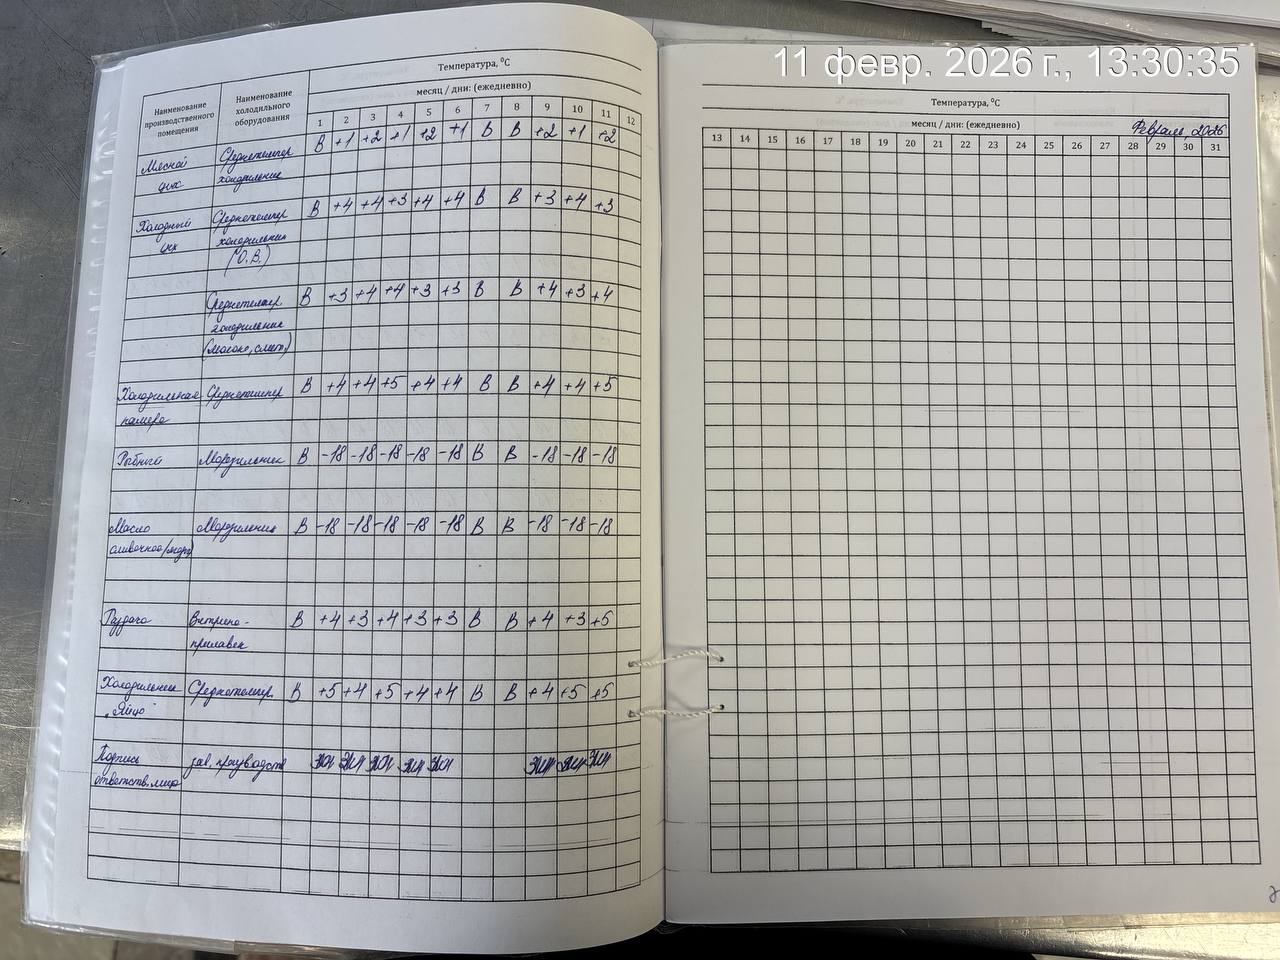 11 февр. 2026 г., 13:30:35
Наименование производственного помещения
Наименование холодильного оборудования
Температура, °С
месяц / дни: (ежедневно)
1 2 3 4 5 6 7 8 9 10 11 12
Мясной В +1 +2 +1 +2 +1 В В +2 +1 +2
цех холодильник
Холодный Среднетемпер В +4 +4 +3 +4 +4 В В +3 +4 +3
цех холодильник
Среднетемпер В +3 +4 +4 +3 +3 В В +4 +3 +4
холодильник
(молоко, смет.)
Холодильная Среднетемпер В +4 +4 +5 +4 +4 В В +4 +4 +5
камера
Рыбный Морозильник В -18 -18 -18 -18 -18 В В -18 -18 -18
Масло Морозильник В -18 -18 -18 -18 -18 В В -18 -18 -18
сливочное
Раздача Витрина- В +4 +3 +4 +3 +3 В В +4 +3 +5
прилавок
Холодильник Среднетемпер. В +5 +4 +5 +4 +4 В В +4 +5 +5
„Яйцо"
Подпись зав. производств
ответств. лица
Температура, °С
месяц / дни: (ежедневно) Февраль, 2026
13 14 15 16 17 18 19 20 21 22 23 24 25 26 27 28 29 30 31